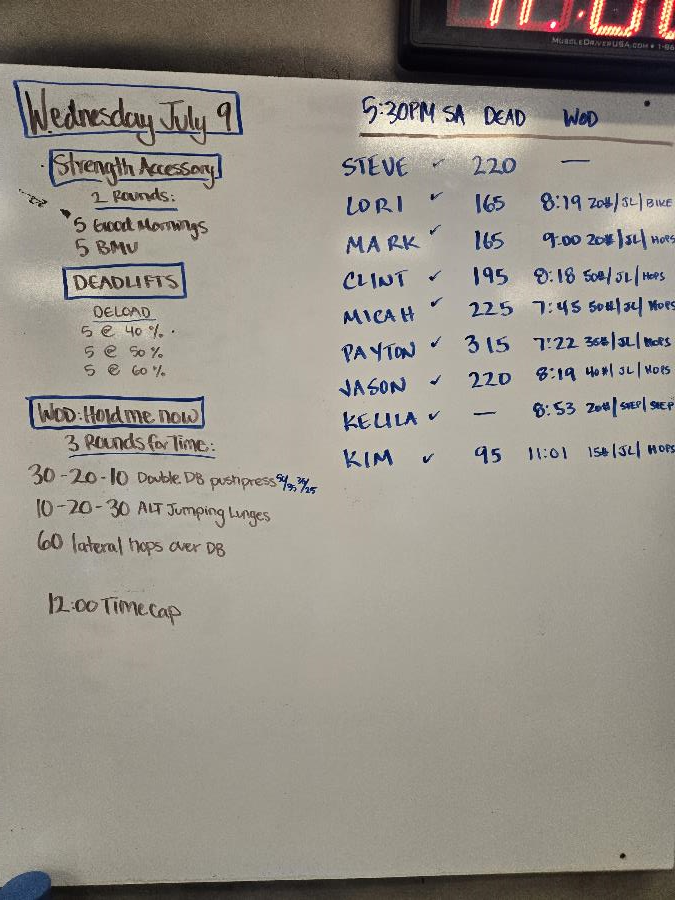 MUSCLEDRIVERUSA.COM • 1-86
Wednesday July 9
Strength Accessory
2 Rounds:
5 Good Mornings
5 BMU
DEADLIFTS
DELOAD
5 @ 40%.
5 @ 50%
5 @ 60%
WOD: Hold me now
3 Rounds for Time:
30-20-10 Double DB pushpress 50/35 35/25
10-20-30 ALT Jumping Lunges
60 lateral hops over DB
12:00 Time cap
5:30PM SA DEAD WOD
STEVE ✓ 220 —
LORI ✓ 165 8:19 20#/JL/BIKE
MARK ✓ 165 9:00 20#/JL/HOPS
CLINT ✓ 195 8:18 50#/JL/HOPS
MICAH ✓ 225 7:45 50#/JL/HOPS
PAYTON ✓ 315 7:22 35#/JL/HOPS
JASON ✓ 220 8:19 40#/JL/HOPS
KELILA ✓ — 8:53 20#/STEP/STEP
KIM ✓ 95 11:01 15#/JL/HOPS